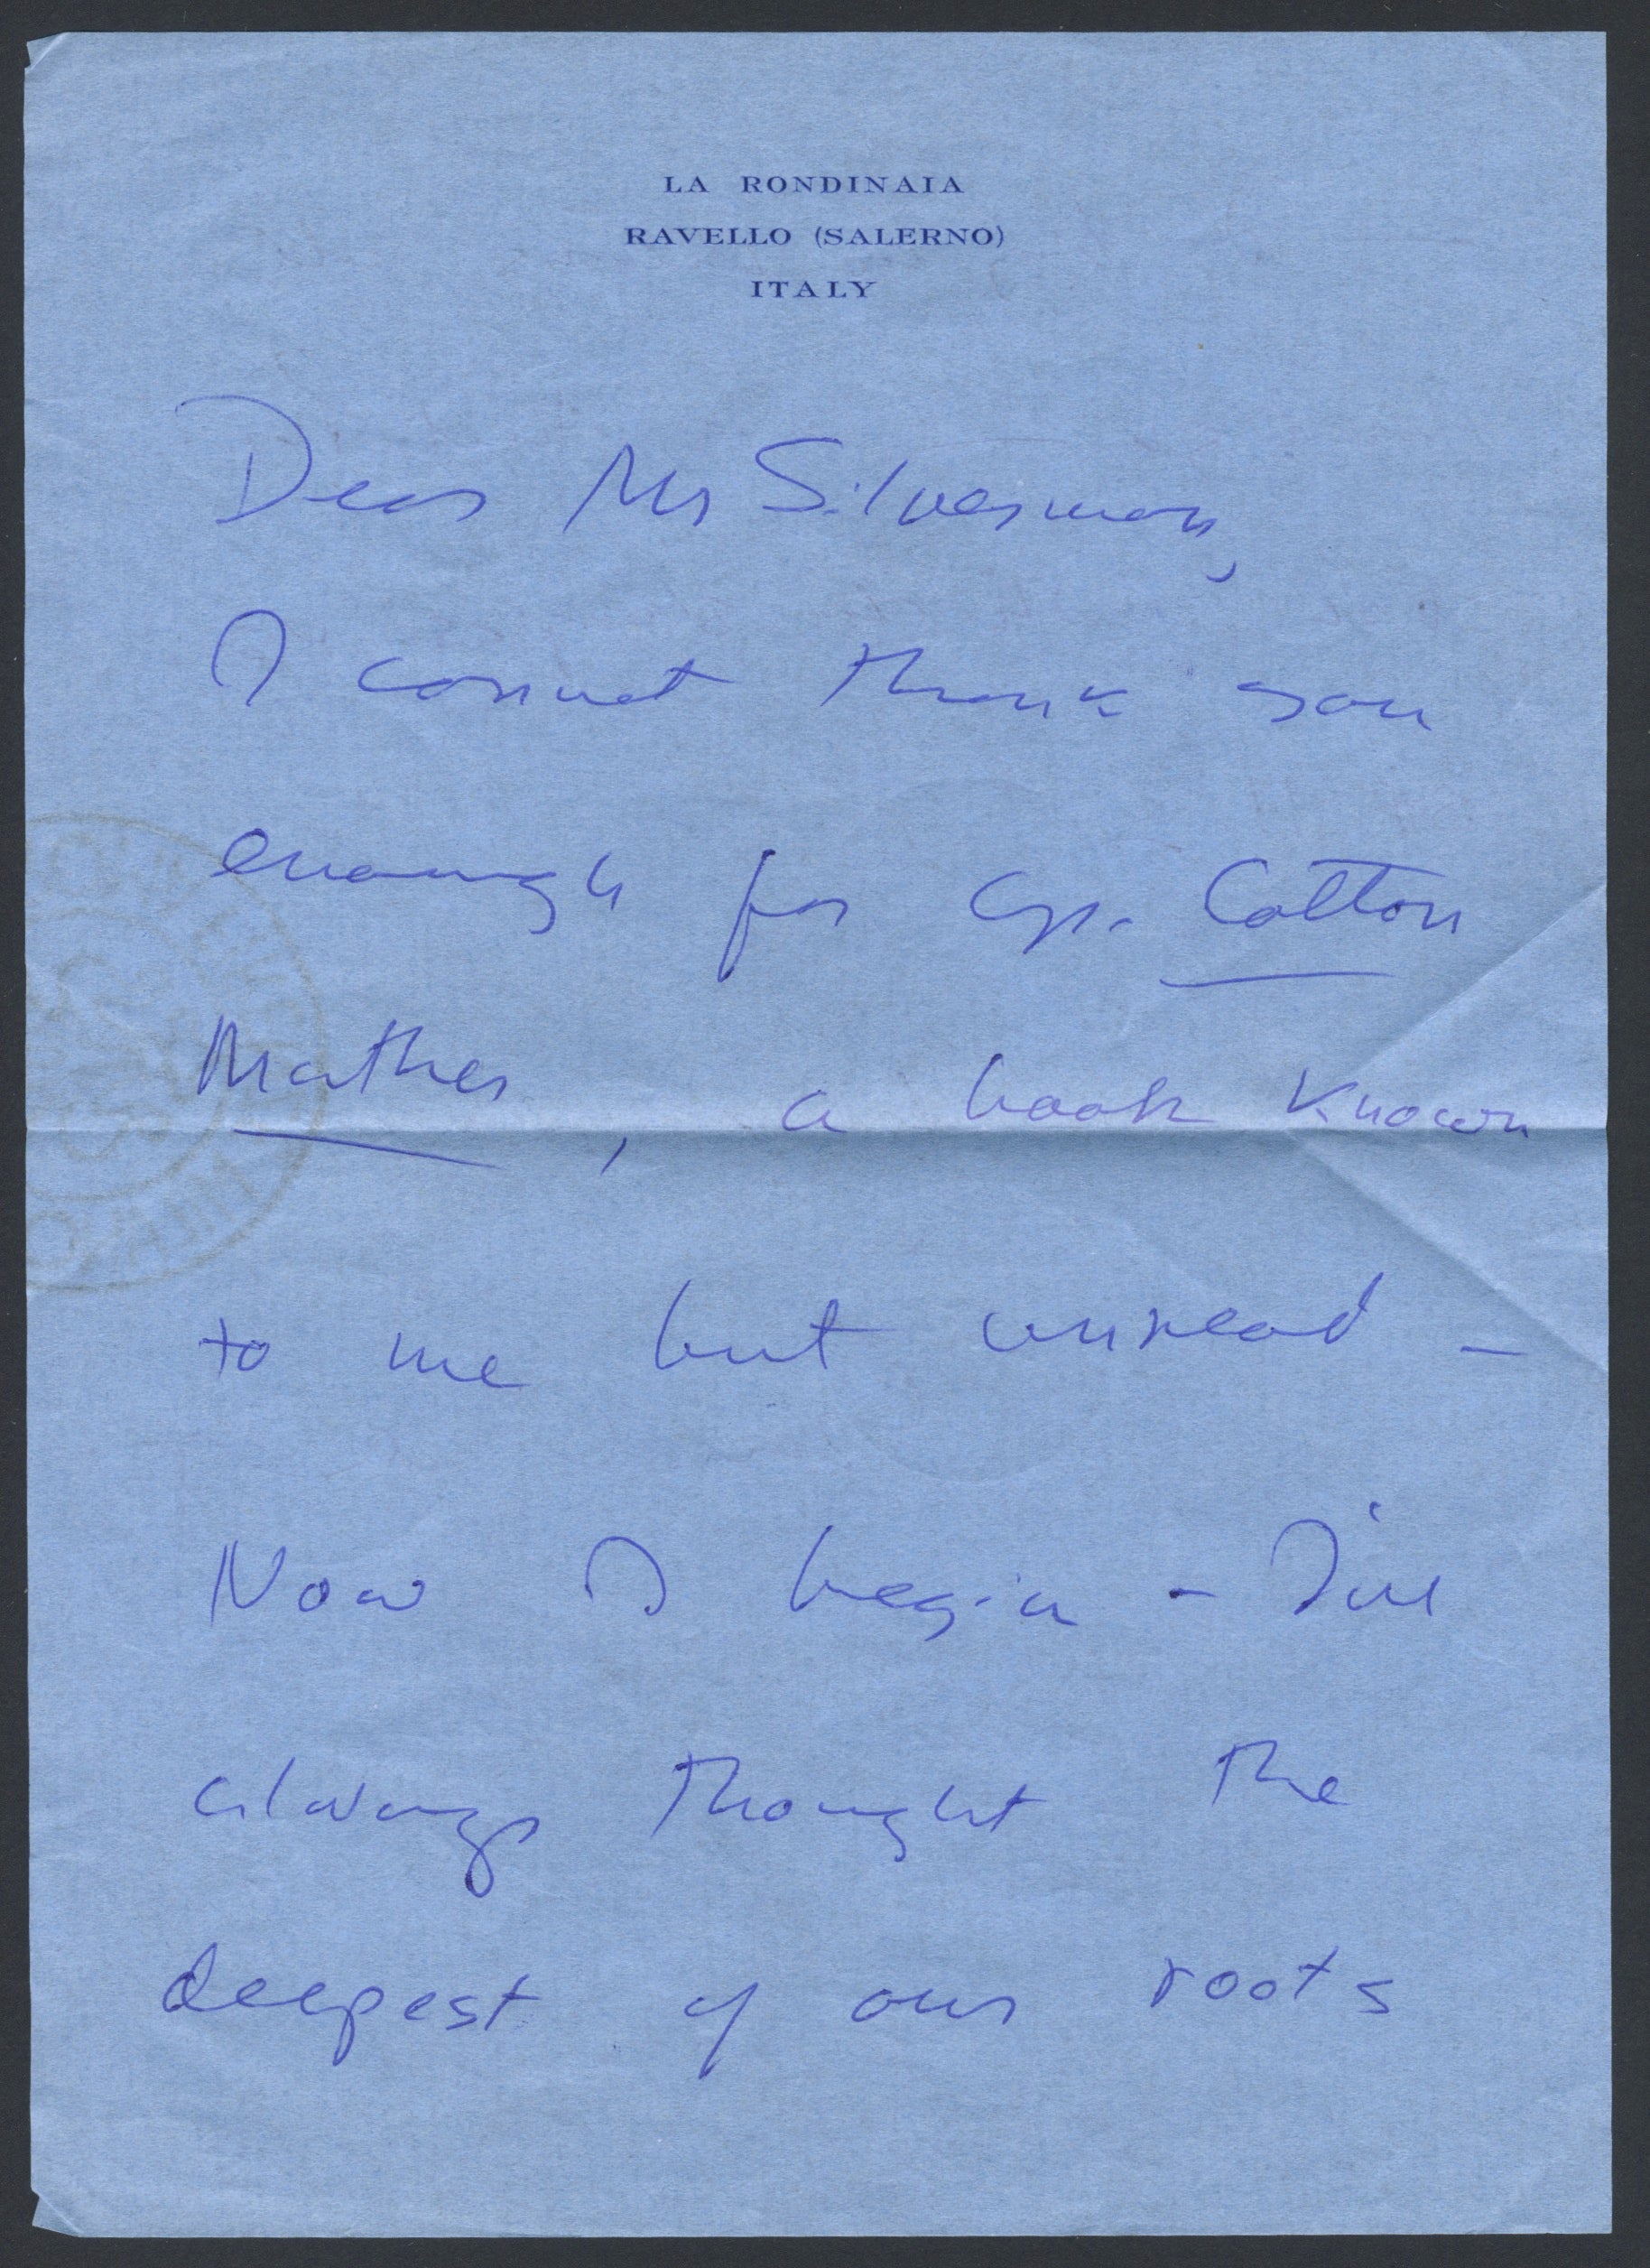 LA RONDINAIA
RAVELLO (SALERNO)
ITALY
Dear Mr Silverman,
I cannot thank you
enough for Cotton
Mather, a book known
to me but unread -
Now I begin - I've
always thought the
deepest of our roots